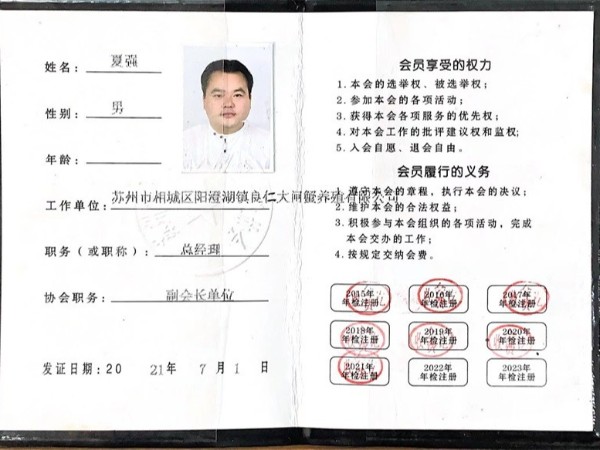 姓名：夏强
性别：男
年龄：
工作单位：苏州市相城区阳澄湖镇良仁大闸蟹养殖有限公司
职务（或职称）：总经理
协会职务：副会长单位
发证日期：2021年7月1日
会员享受的权力
1.本会的选举权、被选举权；
2.参加本会的各项活动；
3.获得本会各项服务的优先权；
4.对本会工作的批评建议权和监权；
5.入会自愿、退会自由。
会员履行的义务
1.遵守本会的章程，执行本会的决议；
2.维护本会的合法权益；
3.积极参与本会组织的各项活动，完成
本会交办的工作；
4.按规定交纳会费。
2015年 2016年 2017年
年检注册 年检注册 年检注册
2018年 2019年 2020年
年检注册 年检注册 年检注册
2021年 2022年 2023年
年检注册 年检注册 年检注册